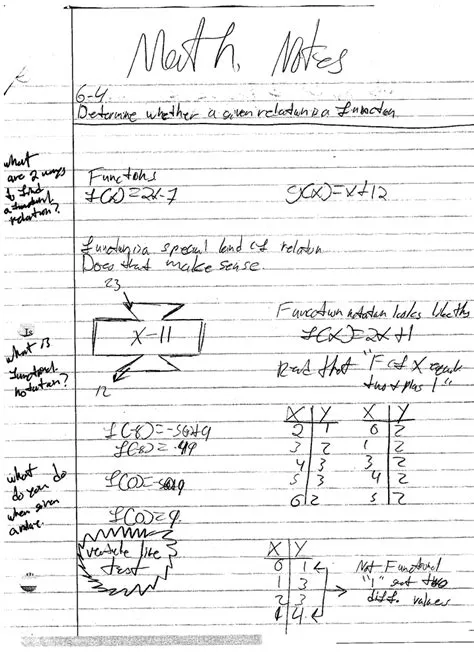 Math Notes
6-4
Determine whether a given relation is a function
what
are 2 ways
to find
a functional
relation?
Functions
f(x)=2x-7
g(x)=x+12
function is a special kind of relation
Does that make sense.
23
x-11
12
Is
what is
functional
notation?
Function notation looks like this
f(x)=2x+1
Read that "F of X equals
two x plus 1"
f(-8)=
f(-8)=
f(0)=
f(0)=9.
X Y
2 1
3 2
4 3
5 3
6 2
X Y
0 2
1 2
3 2
4 2
5 2
what
do you do
when given
a value.
verticle line
test
X Y
0 1
1 3
2 3
1 4
Not Functional
"1" sent two
diff. values